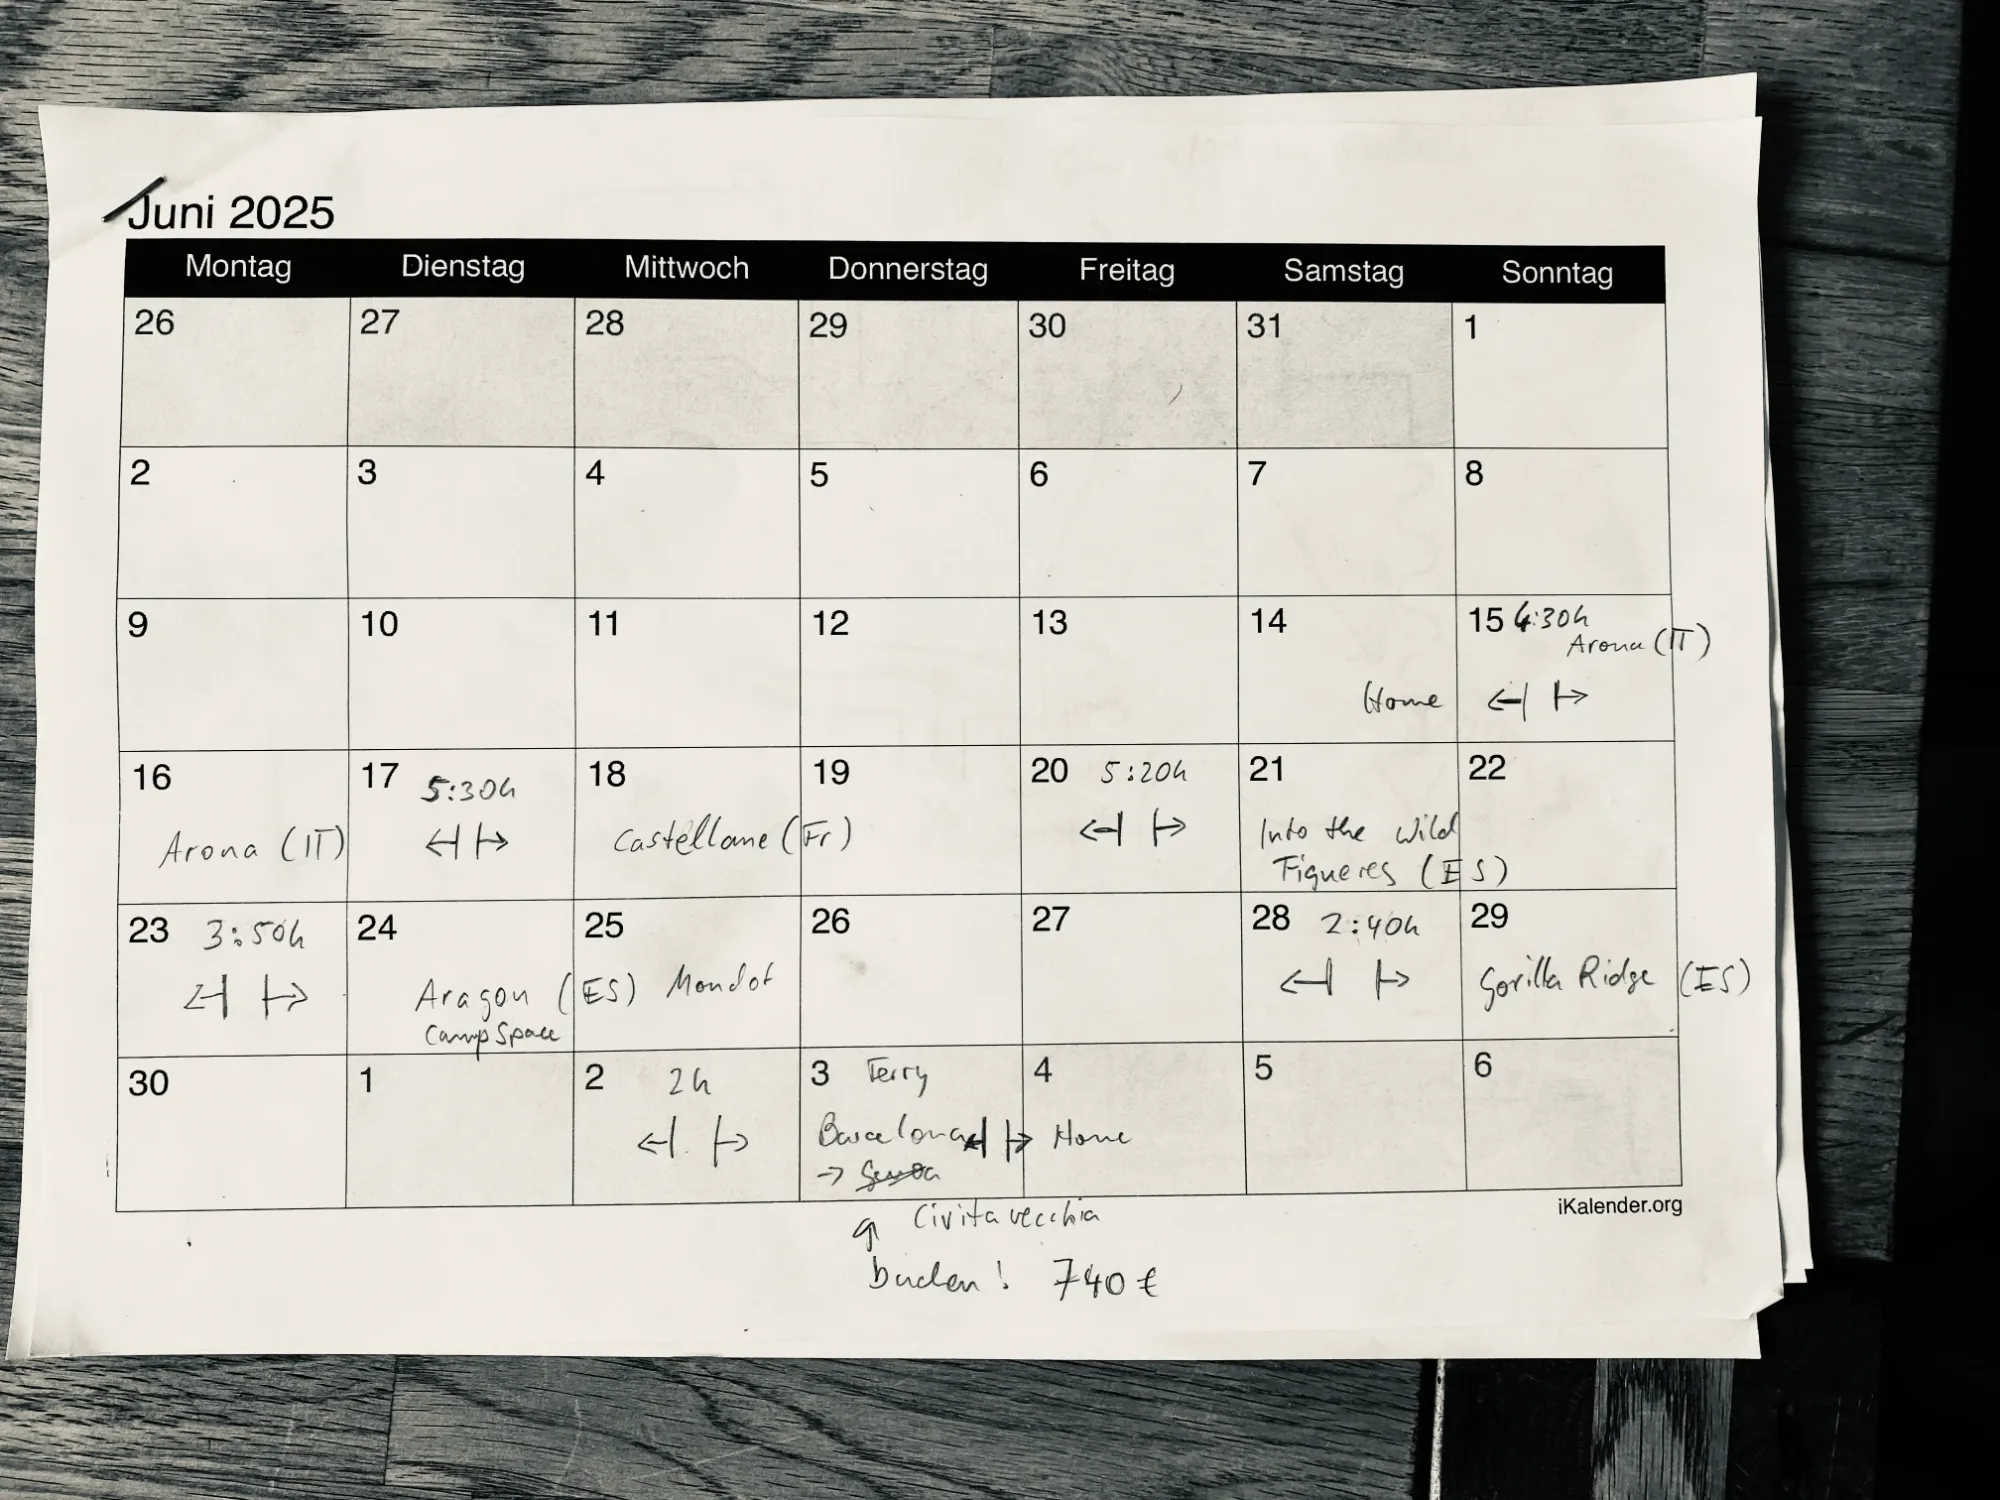 Juni 2025
Montag Dienstag Mittwoch Donnerstag Freitag Samstag Sonntag
26 27 28 29 30 31 1
2 3 4 5 6 7 8
9 10 11 12 13 14 15 4:30h
Arona (IT)
Home
16 17 5:30h 18 19 20 5:20h 21 22
Arona (IT) Castellane (Fr) Into the Wild
Figueres (ES)
23 3:50h 24 25 26 27 28 2:40h 29
Aragon (ES) Mondot Gorilla Ridge (ES)
Camp Space
30 1 2 2h 3 Ferry 4 5 6
Barcelona Home
→ Genoa
iKalender.org
Civitavecchia
buchen! 740€